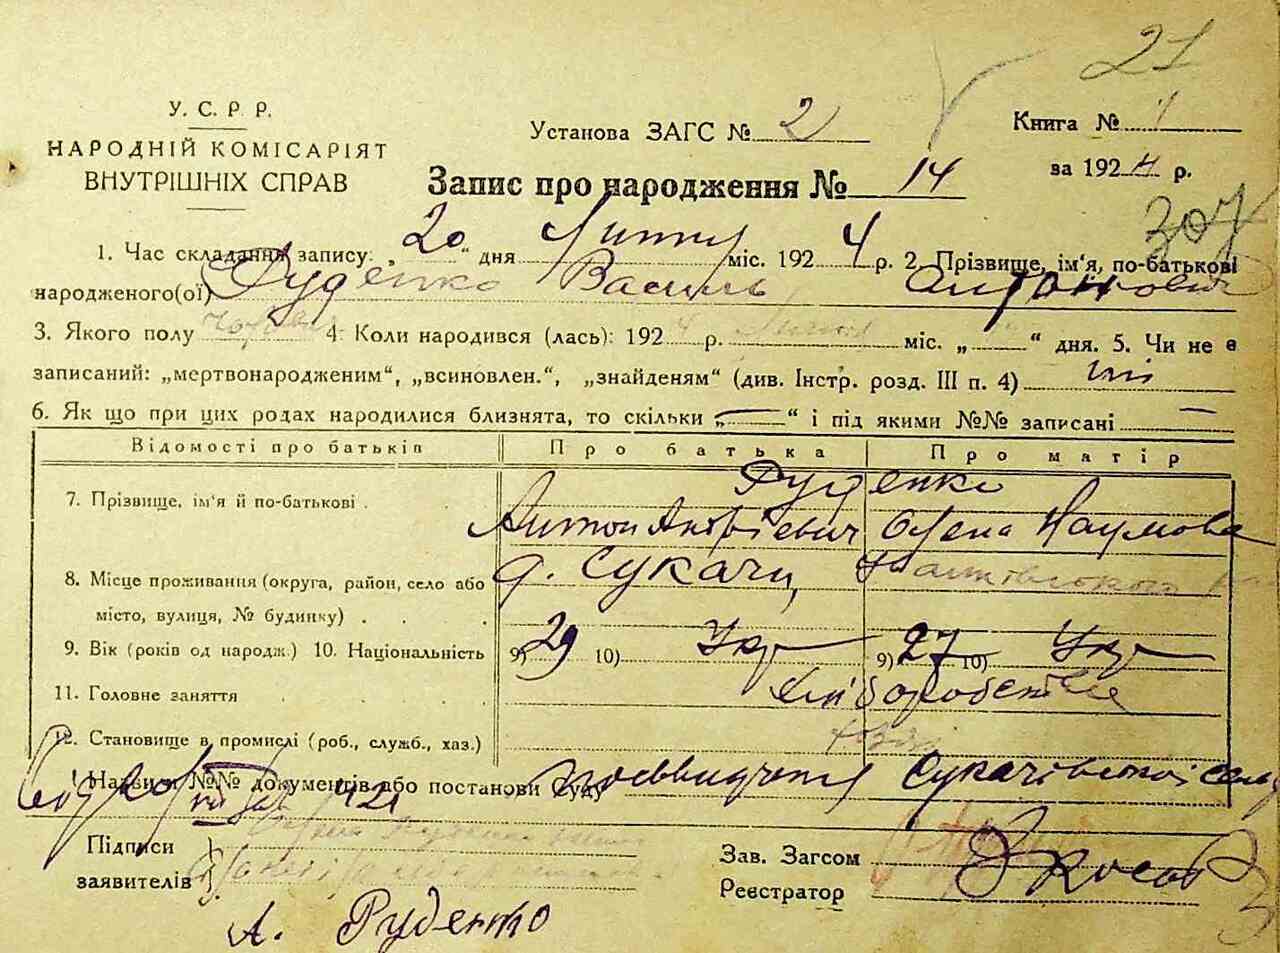 21
У. С. Р. Р.
НАРОДНІЙ КОМІСАРІЯТ
ВНУТРІШНІХ СПРАВ
Установа ЗАГС № 2
Книга № 1
за 1924 р.
Запис про народження № 14
307
1. Час складання запису: „20“ дня міс. 1924 р. 2. Прізвище, ім'я, по-батькові
народженого(ої) Руденко Василь Антонович
3. Якого полу 4. Коли народився (лась): 1924 р. міс. „ “ дня. 5. Чи не є
записаний: „мертвонародженим“, „всиновлен.“, „знайденям“ (див. Інстр. розд. III п. 4) ні
6. Як що при цих родах народилися близнята, то скільки „—“ і під якими №№ записані —
Відомості про батьків Про батька Про матір
Руденко
7. Прізвище, ім'я й по-батькові . Антон Андрієвич Олена Наумова
8. Місце проживання (округа, район, село або с. Сукачи,
місто, вулиця, № будинку) . . .
9. Вік (років од народж.) 10. Національність 9) 29 10) Укр 9) 27 10) Укр
11. Головне заняття хліборобство
12. Становище в промислі (роб., служб., хаз.)
Назви і №№ документів або постанови Суду посвідчення Сукачівської
Підписи
заявителів
Зав. Загсом
Реєстратор
А. Руденко